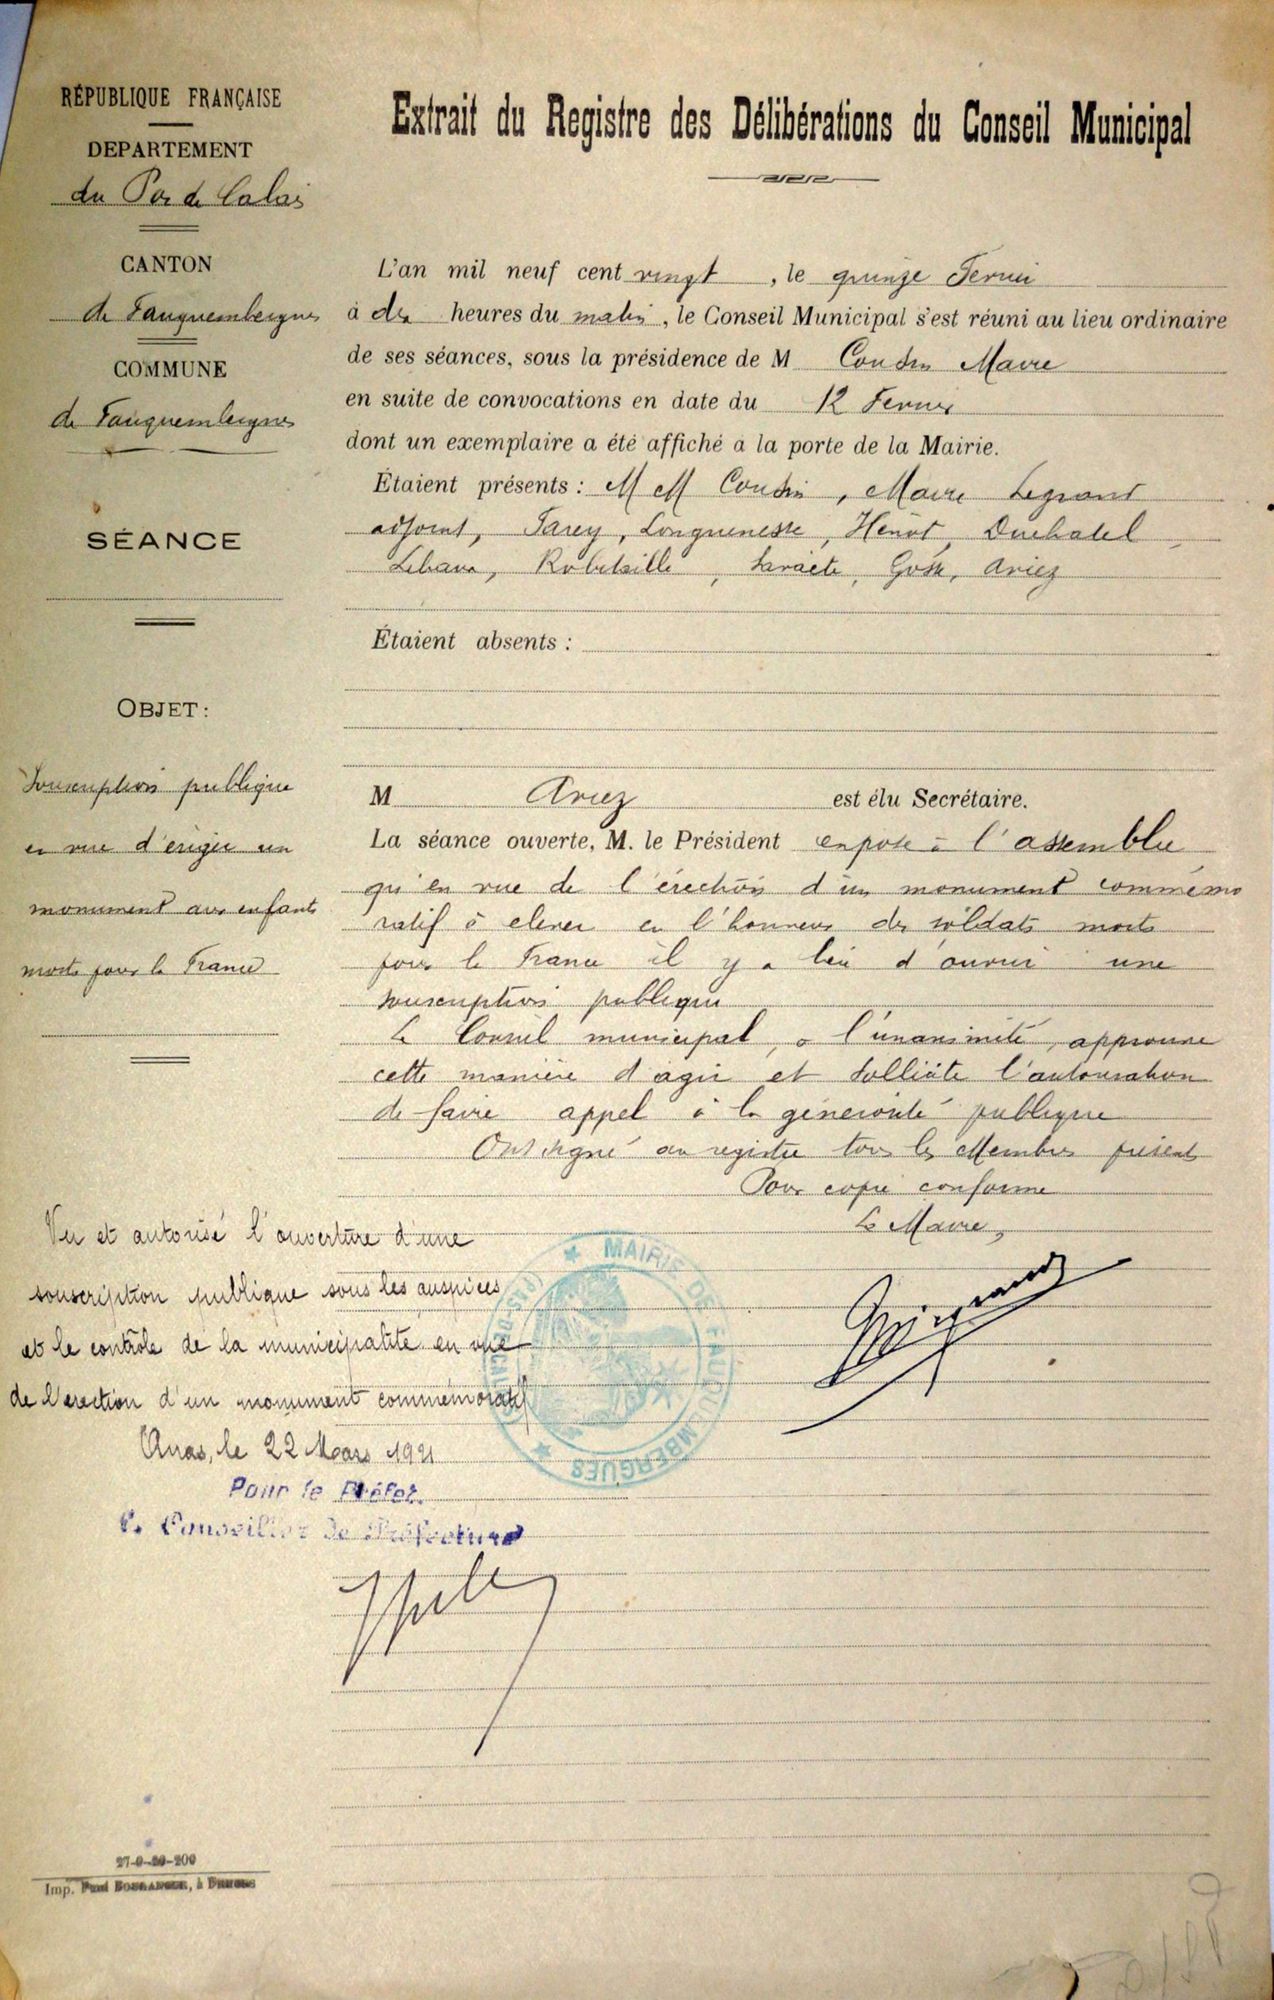 RÉPUBLIQUE FRANÇAISE
DEPARTEMENT
du Pas de Calais
CANTON
de Fauquembergues
COMMUNE
de Fauquembergues
SÉANCE
OBJET :
Souscription publique
en vue d'ériger un
monument aux enfants
morts pour la France
Extrait du Registre des Délibérations du Conseil Municipal
L'an mil neuf cent vingt , le quinze Fevrier
à dix heures du matin, le Conseil Municipal s'est réuni au lieu ordinaire
de ses séances, sous la présidence de M Cousin Maire
en suite de convocations en date du 12 Fevrier
dont un exemplaire a été affiché à la porte de la Mairie.
Étaient présents : MM Cousin, Maire Legrand
adjoint, Tarey, Longuenesse, Hénot, Duchatel
Robitaille, Ariez
Étaient absents :
M Ariez est élu Secrétaire.
La séance ouverte, M. le Président expose à l'assemblée
qu'en vue de l'érection d'un monument commémo
ratif à elever en l'honneur des soldats morts
pour la France il y a lieu d'ouvrir une
souscription publique
Le Conseil municipal, à l'unanimité, approuve
cette manière d'agir et sollicite l'autorisation
de faire appel à la générosité publique
Ont signé au registre tous les Membres présents
Pour copie conforme
Le Maire,
Vu et autorisé l'ouverture d'une
souscription publique sous les auspices
et le contrôle de la municipalité en vue
de l'erection d'un monument commémoratif
Arras, le 22 Mars 1921
Pour le Préfet.
Le Conseiller de Préfecture
MAIRIE DE FAUQUEMBERGUES
(PAS-DE-CALAIS)
Imp. Paul